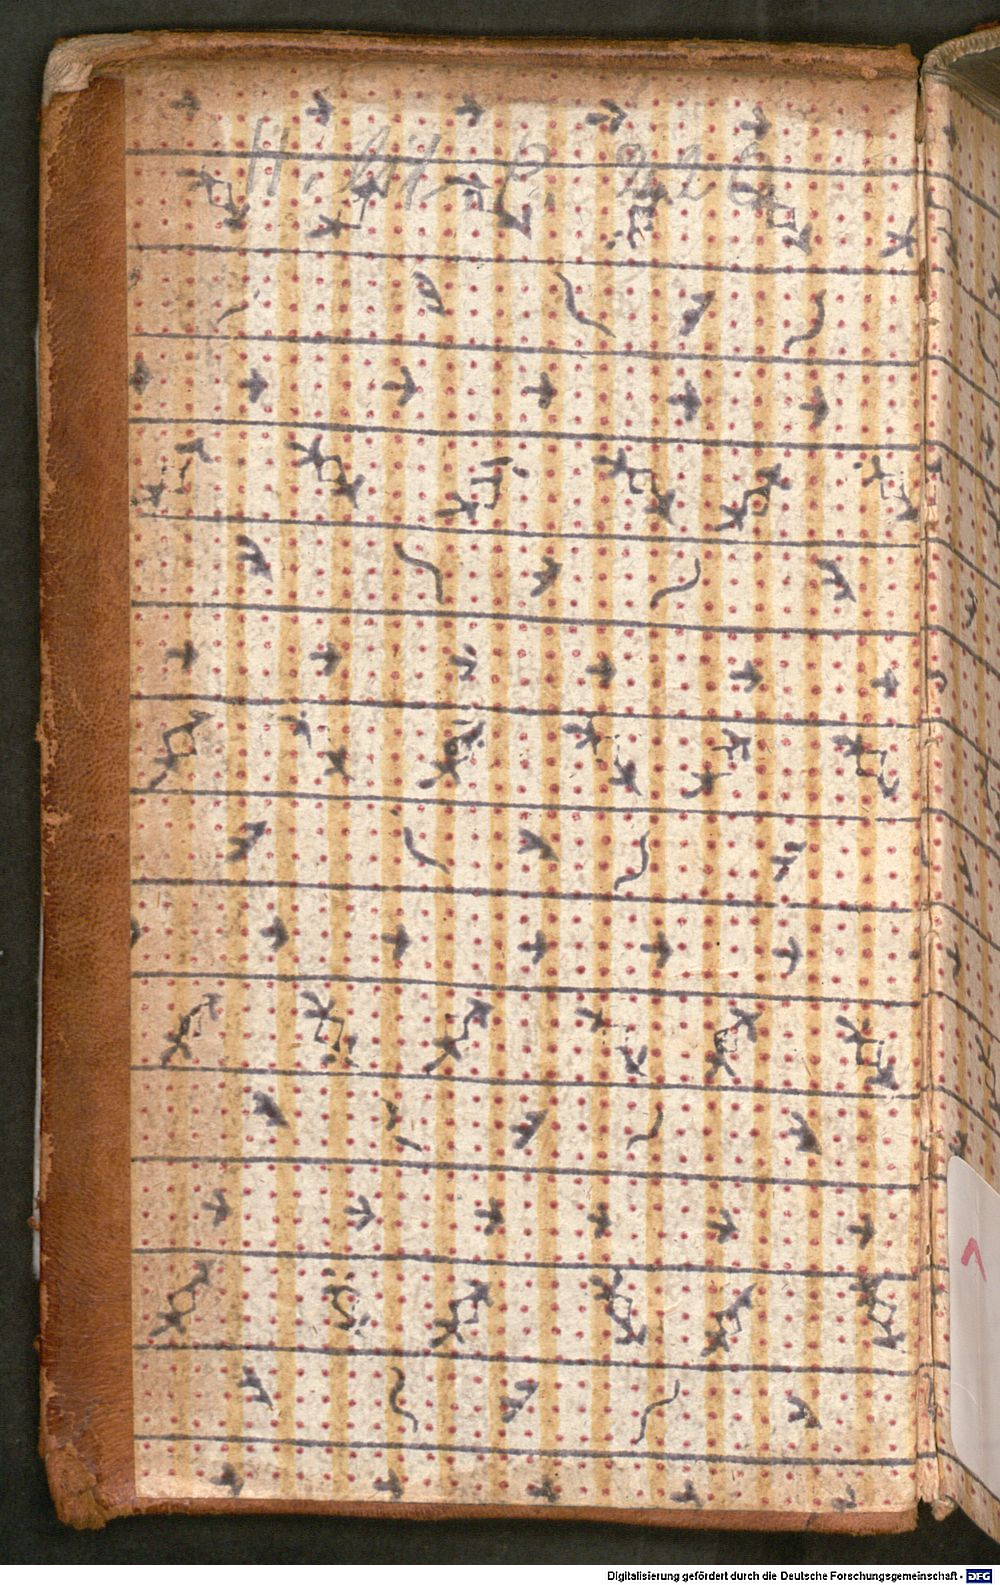 H. lit. P. 226
Digitalisierung gefördert durch die Deutsche Forschungsgemeinschaft - DFG